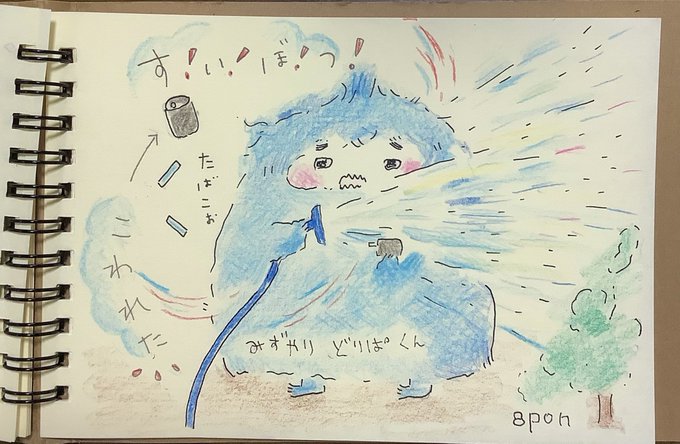 す!い!ぼ!つ!
たばこぉ
こわれた...
みずやり どりぱくん
8pon